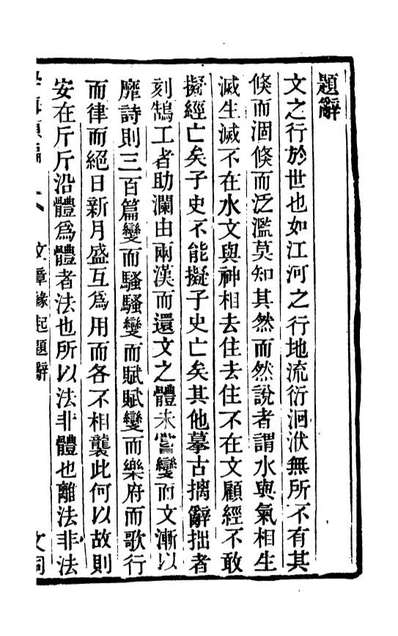 題辭
文之行於世也如江河之行地流衍洄洑無所不有其
倏而涸倏而泛濫莫知其然而然說者謂水與氣相生
滅生滅不在水文與神相去住去住不在文顧經不敢
擬經亡矣子史不能擬子史亡矣其他摹古摛辭拙者
刻鵠工者助瀾由兩漢而還文之體未嘗變而文漸以
靡詩則三百篇變而騷騷變而賦賦變而樂府而歌行
而律而絕日新月盛互爲用而各不相襲此何以故則
安在斤斤沿體爲體者法也所以法非體也離法非法
文章緣起題辭